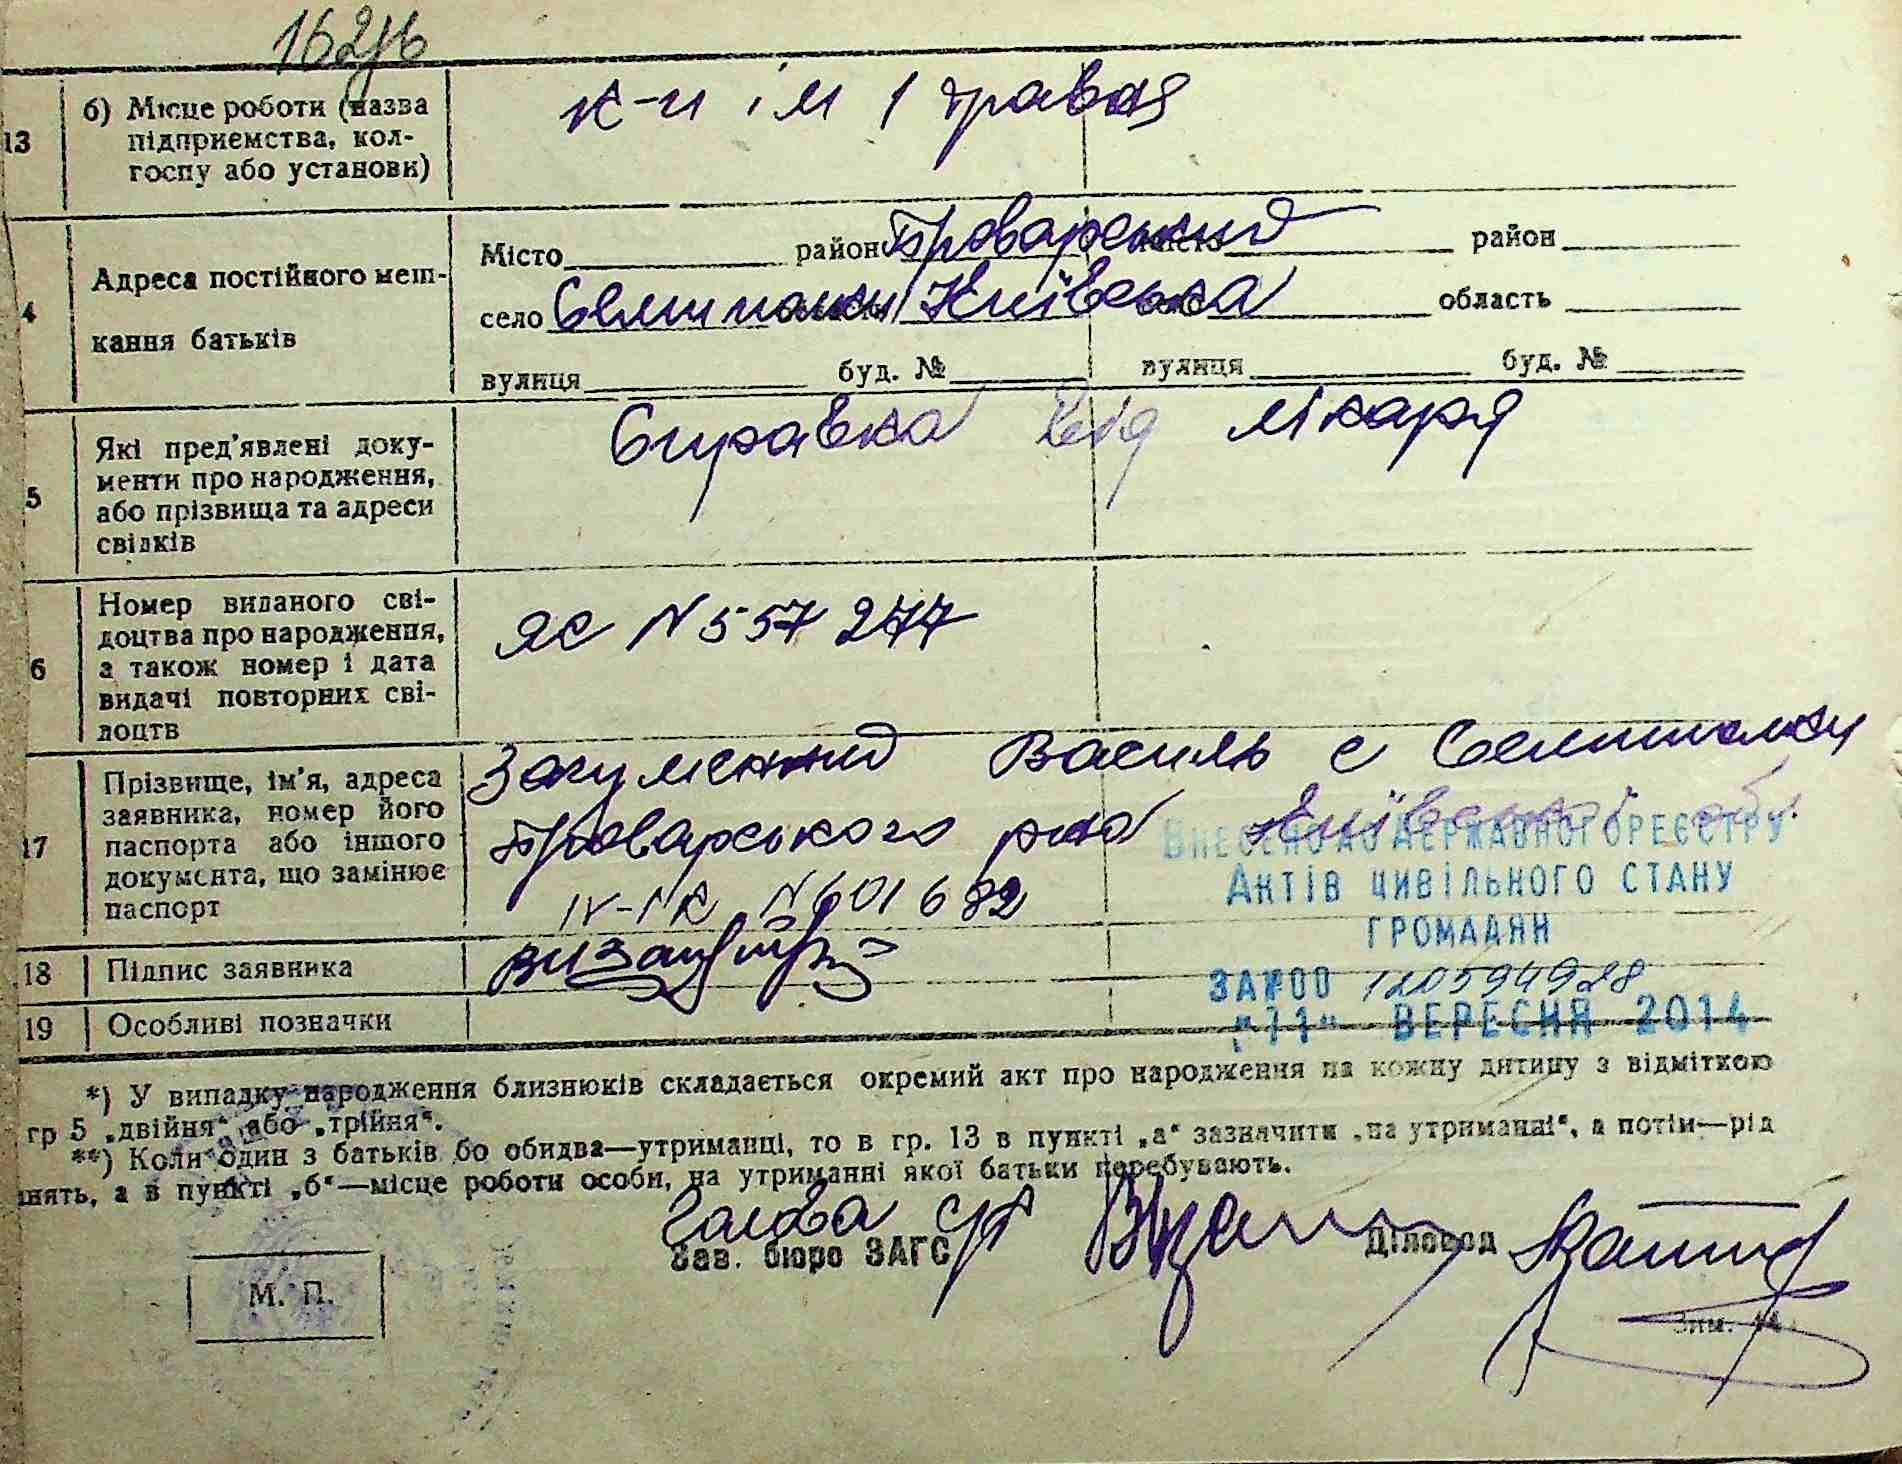 13
б) Місце роботи (назва
підприємства, кол-
госпу або установи)
к-п ім 1 травня
4
Адреса постійного меш-
кання батьків
Місто район Броварський місто район
село Семиполки Київська область
вулиця буд. № вулиця буд. №
5
Які пред'явлені доку-
менти про народження,
або прізвища та адреси
свідків
Справка від лікаря
6
Номер виданого сві-
доцтва про народження,
а також номер і дата
видачі повторних сві-
доцтв
ЯС N 557277
17
Прізвище, ім'я, адреса
заявника, номер його
паспорта або іншого
документа, що замінює
паспорт
Загуменний Василь с Семиполки
Броварського р-на Київської обл.
N 601682
ВНЕСЕНО ДО ДЕРЖАВНОГО РЕЄСТРУ
АКТІВ ЦИВІЛЬНОГО СТАНУ
ГРОМАДЯН
ЗА №00 120594928
"11" ВЕРЕСНЯ 2014
18 Підпис заявника
19 Особливі позначки
*) У випадку народження близнюків складається окремий акт про народження на кожну дитину з відміткою
гр 5 „двійня“ або „трійня“.
**) Коли один з батьків бо обидва—утриманці, то в гр. 13 в пункті „а“ зазначити „на утриманні“, а потім—рід
нять, а в пункті „б“—місце роботи особи, на утриманні якої батьки перебувають.
Голова с/р
Зав. бюро ЗАГС Діловод
М. П.